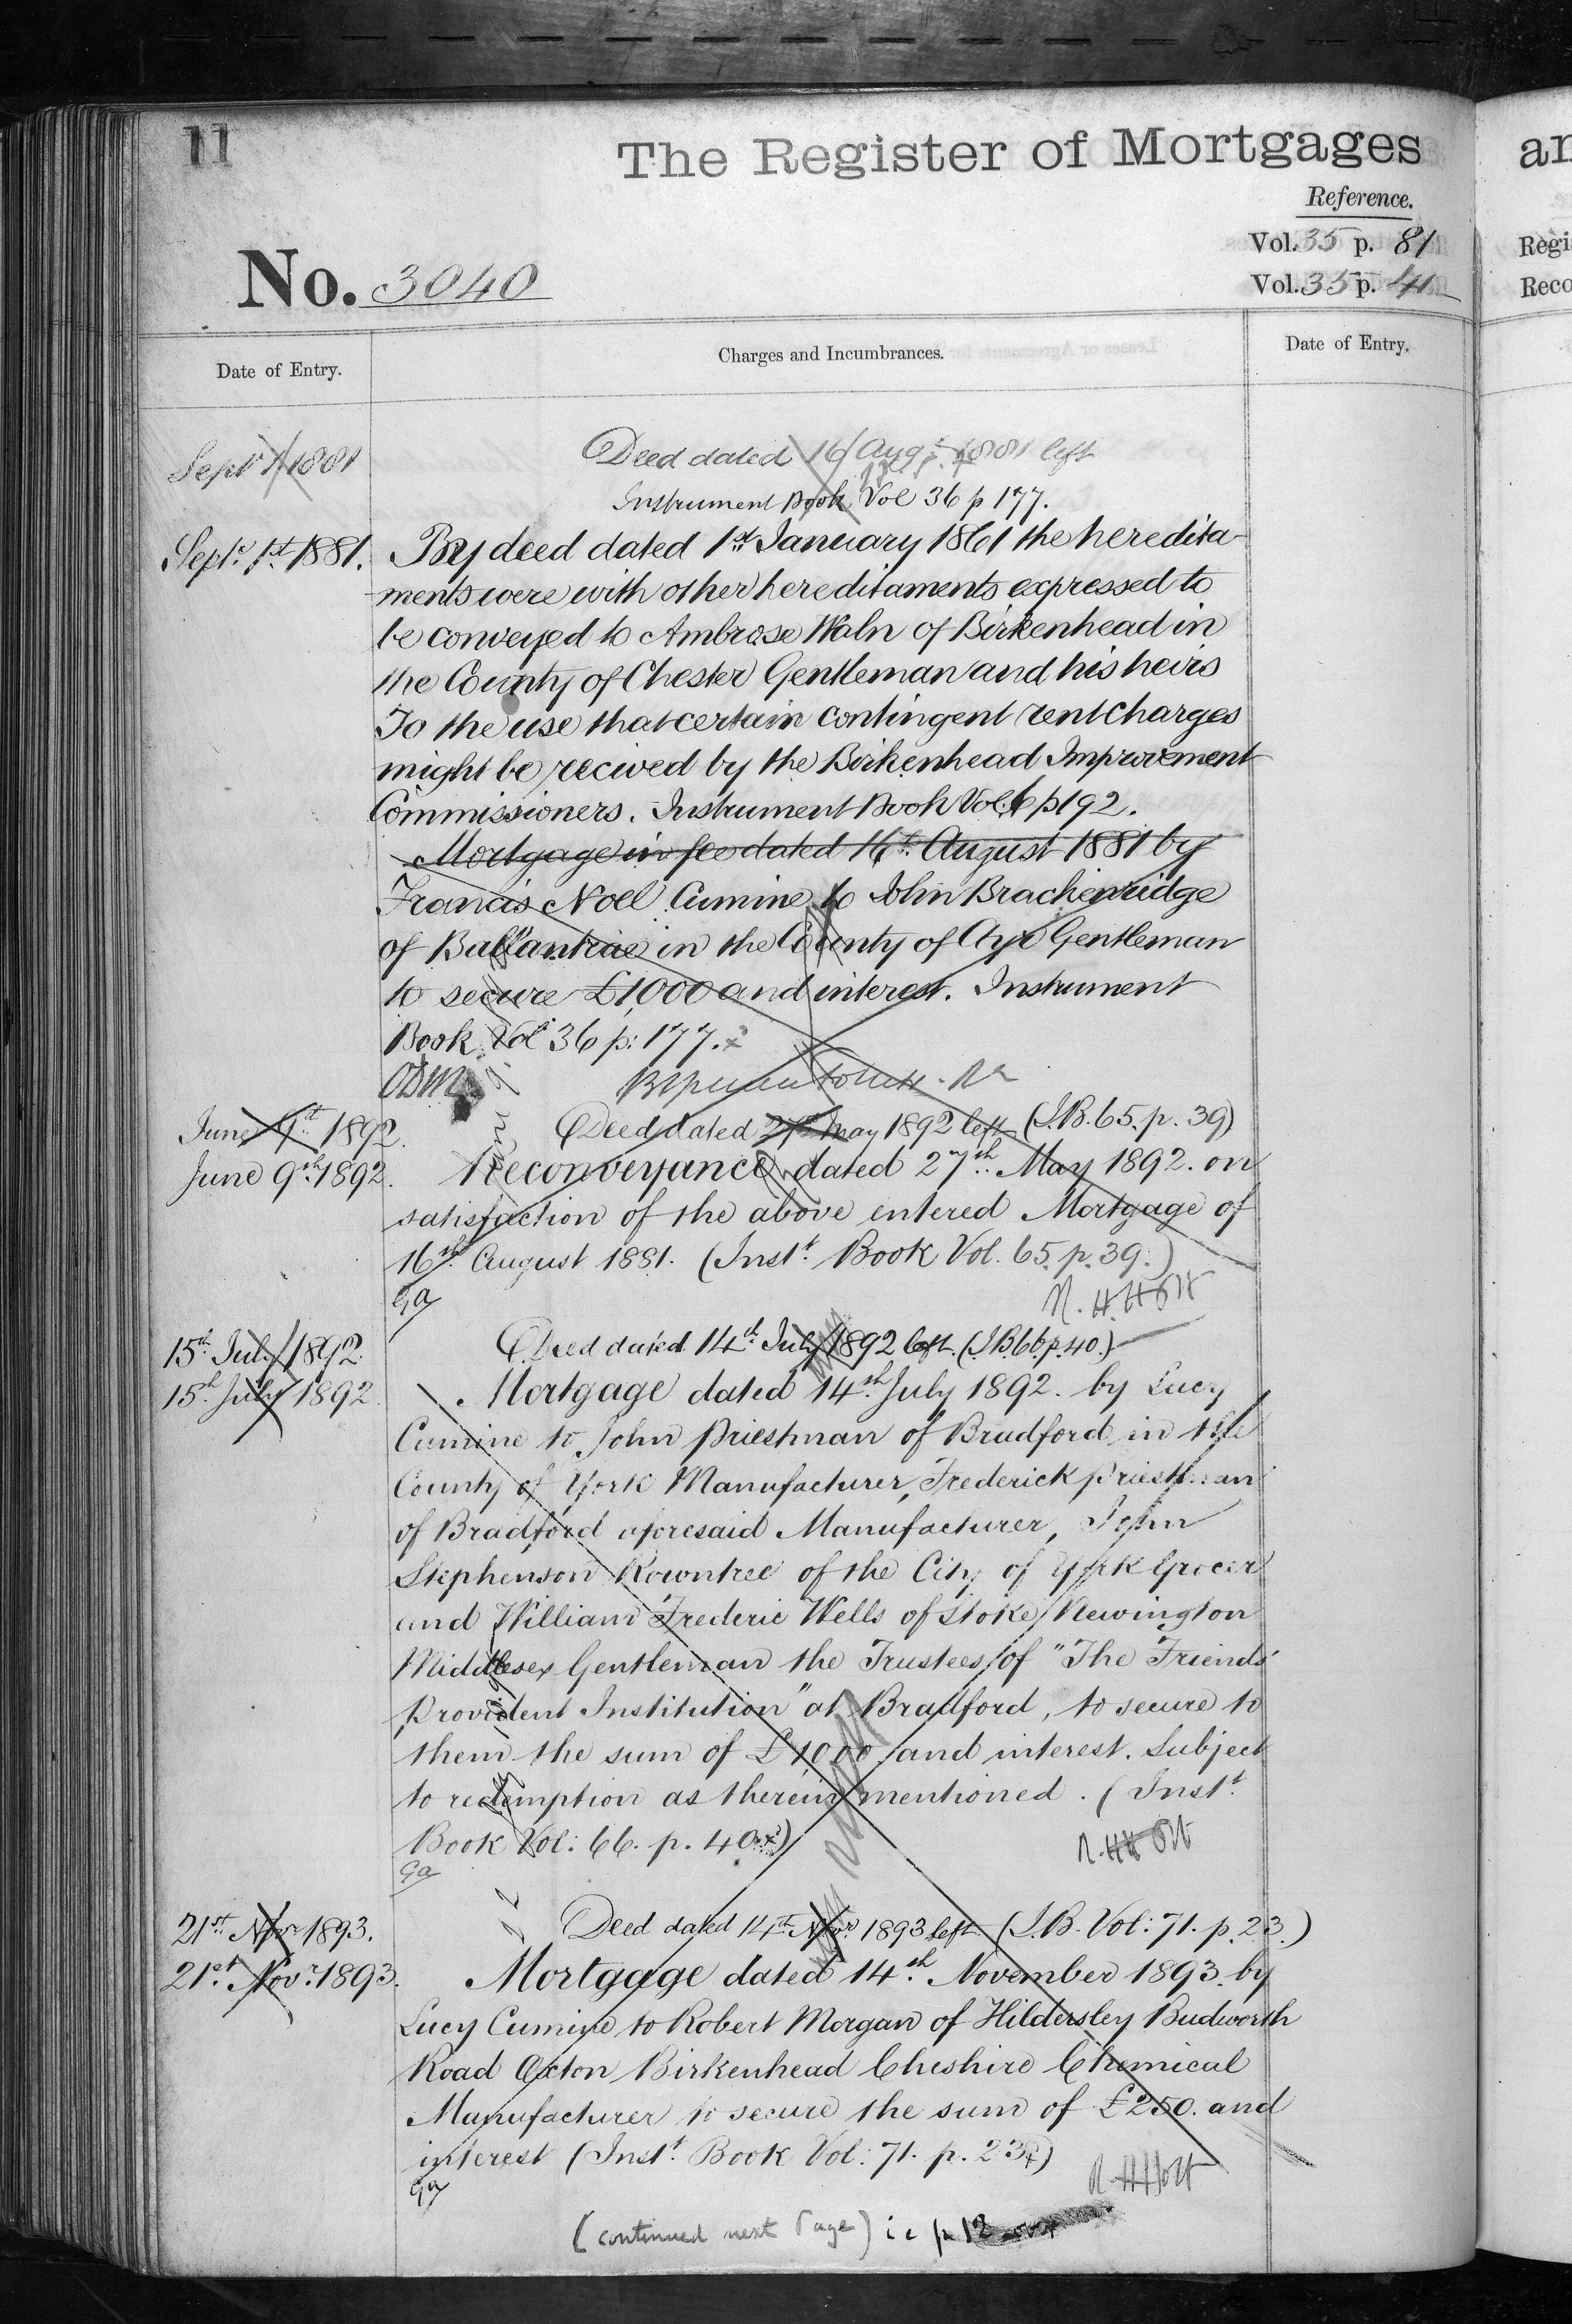 11
The Register of Mortgages
Reference.
Vol. 35 p. 81
Vol. 35 p. 41
No. 3040
Date of Entry.
Charges and Incumbrances.
Date of Entry.
Sept 1 1881
Deed dated 16 Augt 1881 left
Instrument Book Vol 36 p 177.
Septr 1st 1881.
By deed dated 1st January 1861 the heredita-
ments were with other hereditaments expressed to
be conveyed to Ambrose Waln of Birkenhead in
the County of Chester Gentleman and his heirs
To the use that certain contingent rent charges
might be recived by the Birkenhead Improvement
Commissioners. Instrument Book Vol. 6 p 192.
Mortgage in fee dated 16th August 1881 by
Francis Noel Cumine to John Brackenridge
of Ballantrae in the County of Ayr Gentleman
to secure £1,000 and interest. Instrument
Book Vol 36 p: 177.
June 9th 1892.
Deed dated 27th May 1892 left (I.B. 65. p. 39)
June 9th 1892.
Reconveyance dated 27th May 1892. on
satisfaction of the above entered Mortgage of
16th August 1881. (Instt Book Vol. 65. p. 39.)
Ga
15th July 1892
Deed dated 14th July 1892 left. (I.B. 66. p. 40.)
15th July 1892
Mortgage dated 14th July 1892. by Lucy
Cumine to John Priestman of Bradford in the
County of York Manufacturer, Frederick Priestman
of Bradford aforesaid Manufacturer, John
Stephenson Rowntree of the City of York Grocer
and William Frederic Wells of Stoke Newington
Middlesex Gentleman the Trustees of "The Friends'
Provident Institution" at Bradford, to secure to
them the sum of £1000 and interest. Subject
to redemption as therein mentioned. (Instt
Book Vol: 66. p. 40.)
Ga
21st Novr 1893.
Deed dated 14th Novr 1893 left (I.B. Vol: 71. p. 23.)
21st Novr 1893.
Mortgage dated 14th November 1893. by
Lucy Cumine to Robert Morgan of Hildersley Budworth
Road Oxton Birkenhead Cheshire Chemical
Manufacturer to secure the sum of £250. and
interest (Instt Book Vol: 71. p. 23)
Ga
(continued next Page) i e p 12
an
Regi
Reco